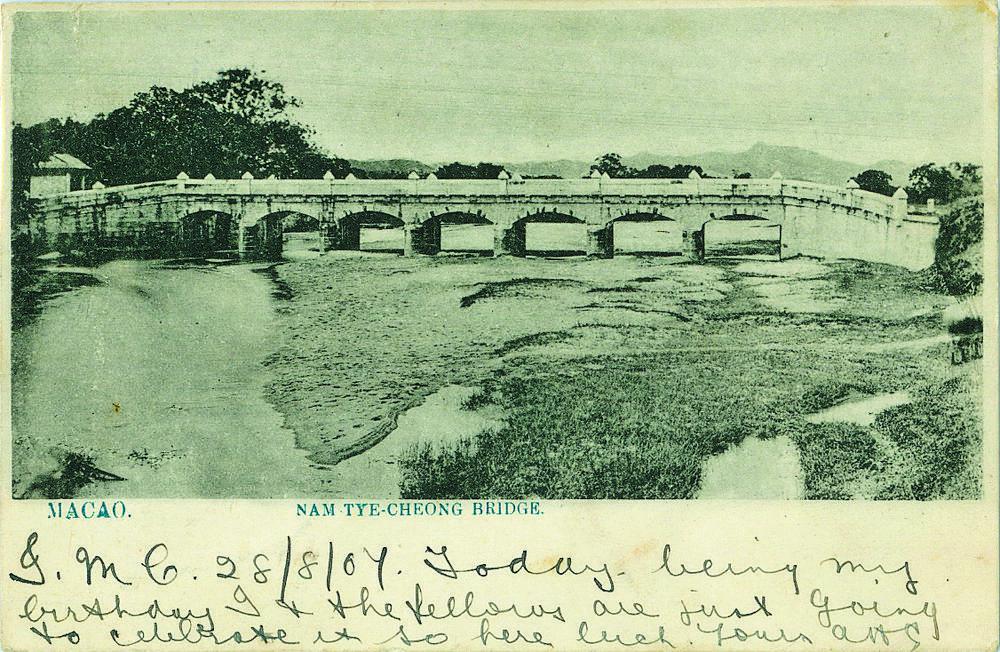 MACAO. NAM TYE-CHEONG BRIDGE.
I. M C. 28/8/07. Today being my
birthday I & the fellows are just going
to celebrate it so here luck. Yours